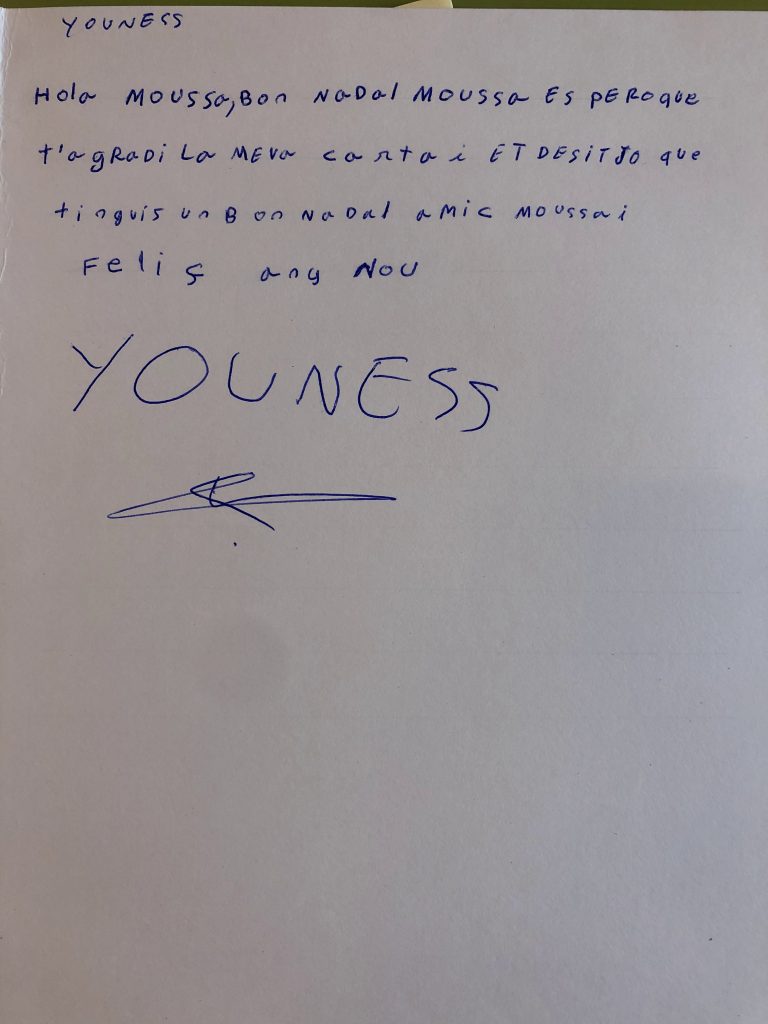 YOUNESS
Hola MOUSSa, Bon NaDal MOUSSa ES PEROque
t'agRaDi La MEVa carta i ET DESiTJO que
tinguis un Bon NaDal aMic MOUSSa i
Feliç any NOU
YOUNESS